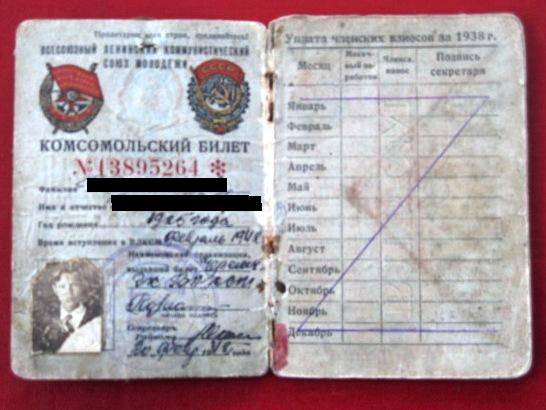 Пролетарии всех стран, соединяйтесь!
ВСЕСОЮЗНЫЙ ЛЕНИНСКИЙ КОММУНИСТИЧЕСКИЙ
СОЮЗ МОЛОДЕЖИ
КОМСОМОЛЬСКИЙ БИЛЕТ
№13895264 *
Фамилия
Имя и отчество
Год рождения года
Время вступления в ВЛКСМ февраль
Наименование организации,
выдавшей билет
Секретарь
Райкома
года
Уплата членских взносов за 1938 г.
Месяц Месяч-ный за-работок Членск. взнос Подпись секретаря
Январь
Февраль
Март
Апрель
Май
Июнь
Июль
Август
Сентябрь
Октябрь
Ноябрь
Декабрь